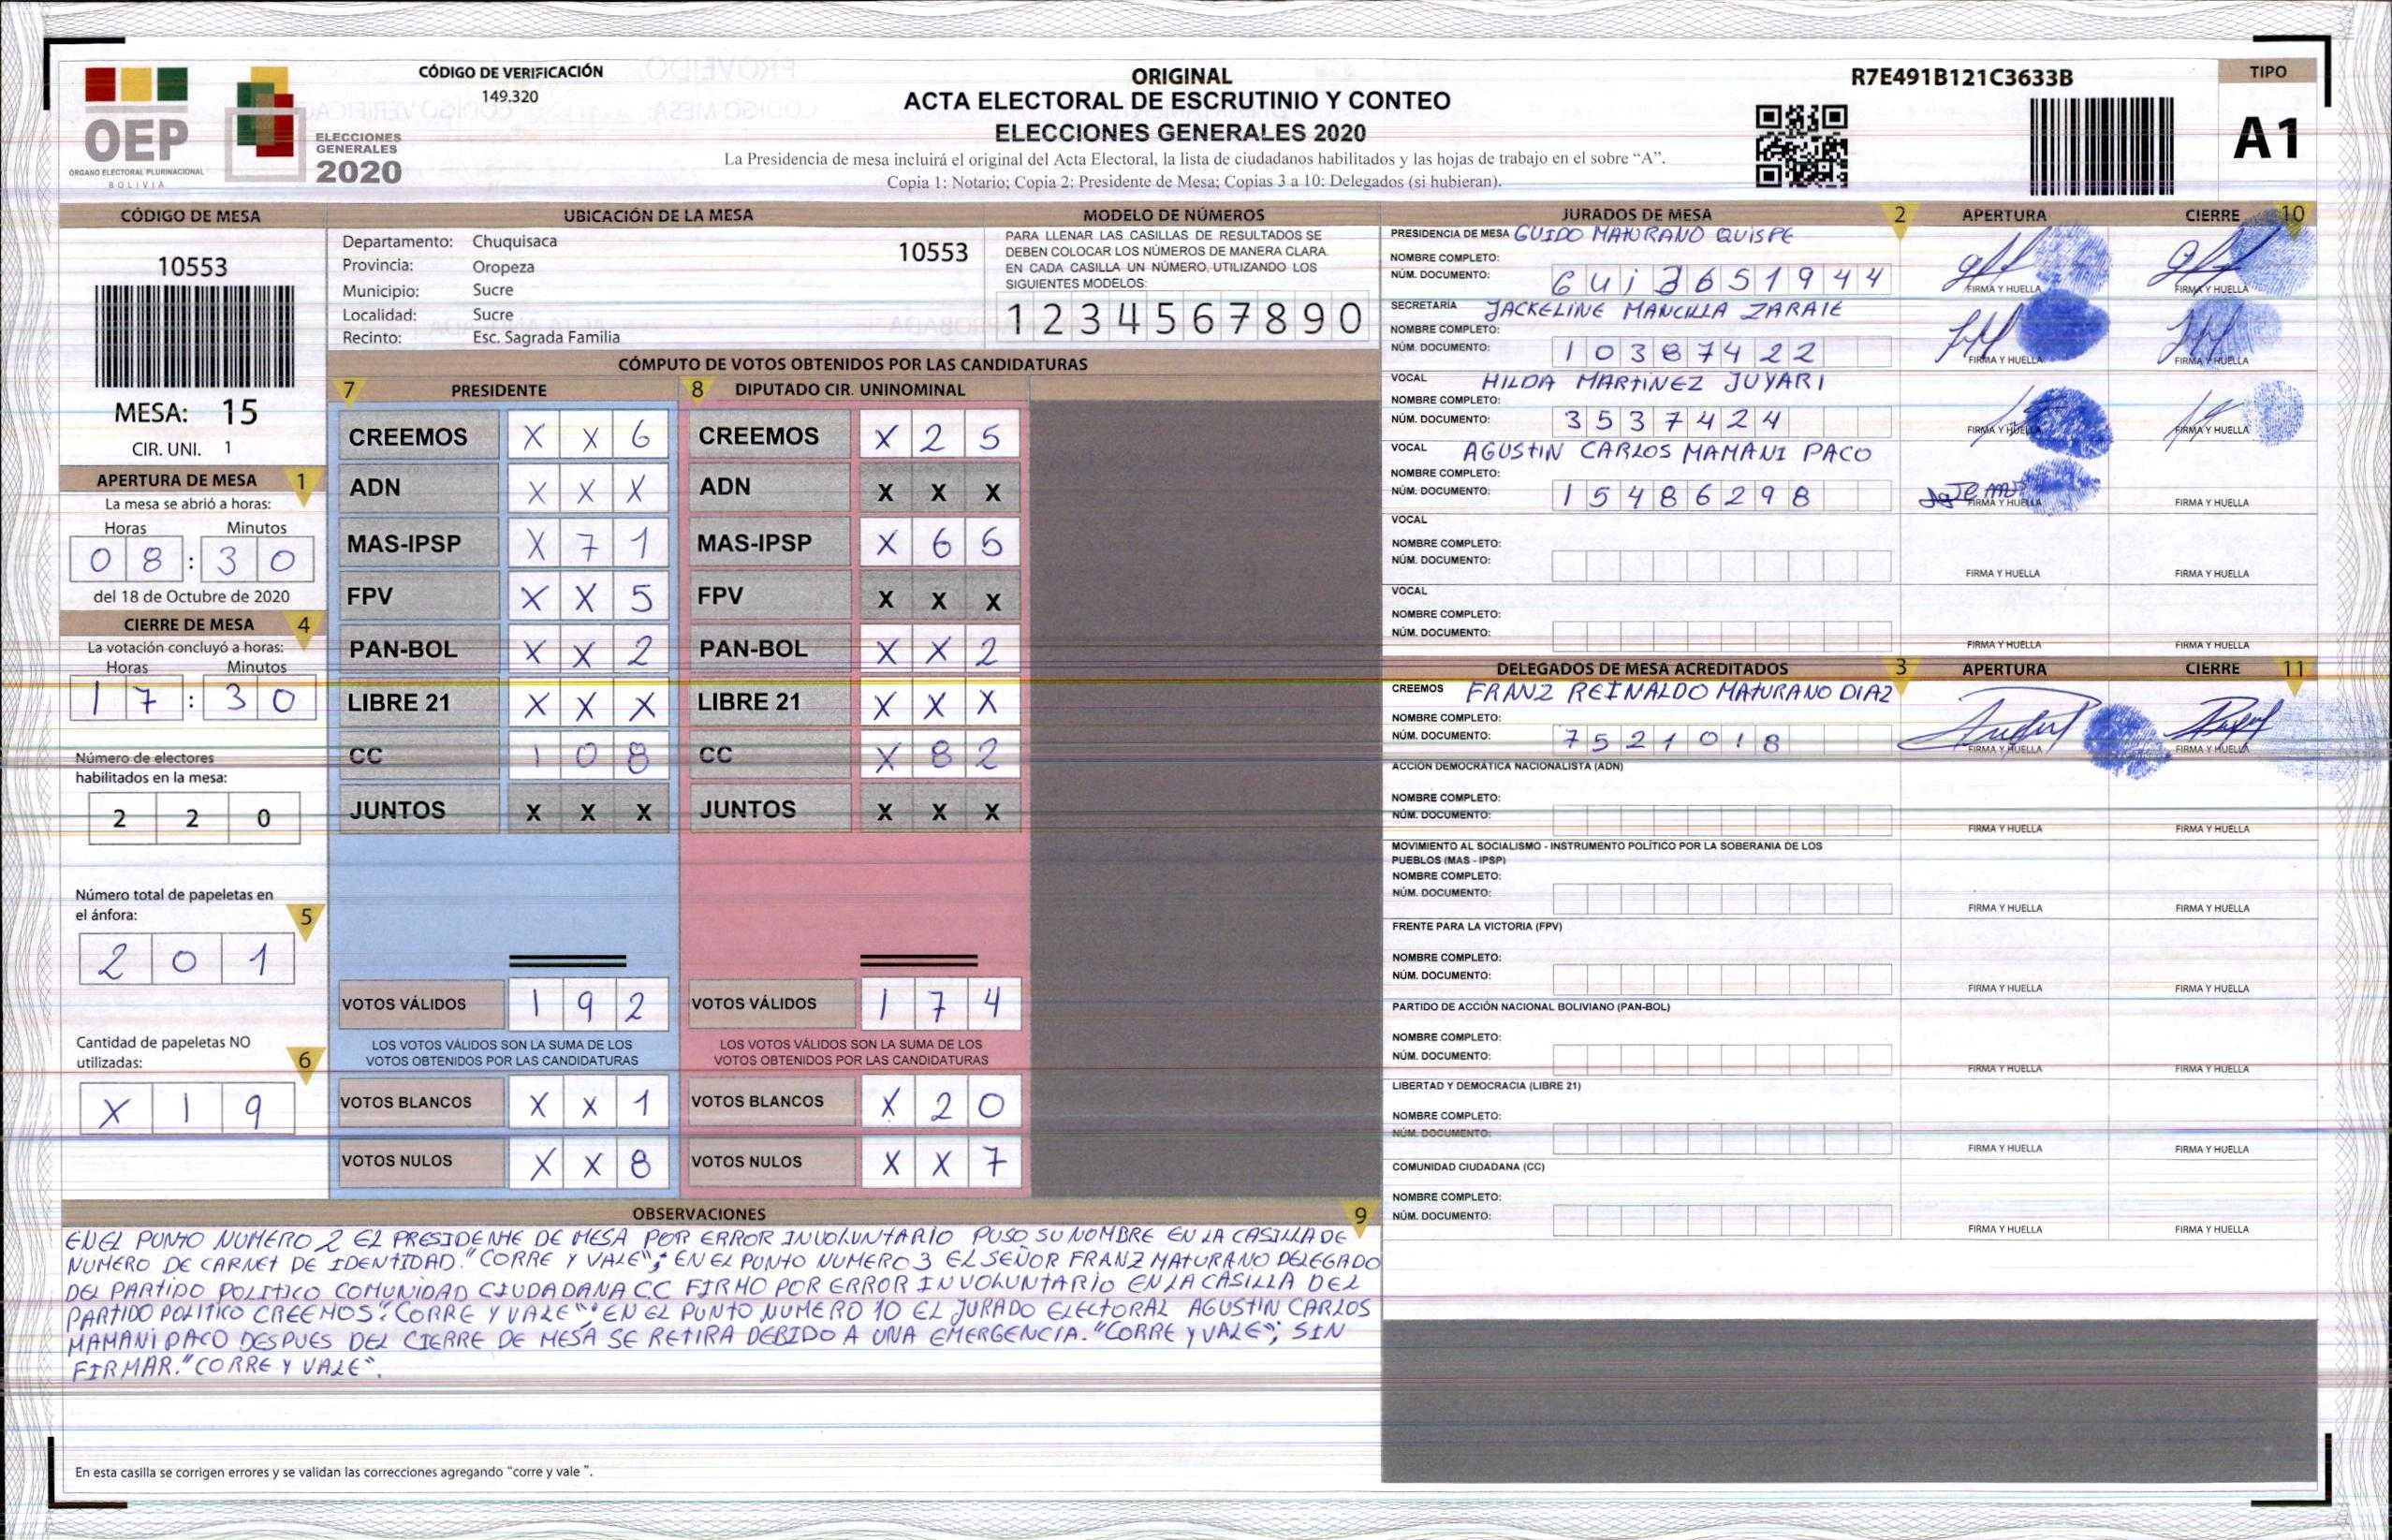 CÓDIGO DE VERIFICACIÓN
149.320
OEP
ÓRGANO ELECTORAL PLURINACIONAL
BOLIVIA
ELECCIONES
GENERALES
2020
ORIGINAL
ACTA ELECTORAL DE ESCRUTINIO Y CONTEO
ELECCIONES GENERALES 2020
La Presidencia de mesa incluirá el original del Acta Electoral, la lista de ciudadanos habilitados y las hojas de trabajo en el sobre “A”.
Copia 1: Notario; Copia 2: Presidente de Mesa; Copias 3 a 10: Delegados (si hubieran).
R7E491B121C3633B
TIPO
A1
CÓDIGO DE MESA
10553
MESA: 15
CIR. UNI. 1
APERTURA DE MESA 1
La mesa se abrió a horas:
Horas Minutos
0 8 : 3 0
del 18 de Octubre de 2020
CIERRE DE MESA 4
La votación concluyó a horas:
Horas Minutos
1 7 : 3 0
Número de electores
habilitados en la mesa:
2 2 0
Número total de papeletas en
el ánfora: 5
2 0 1
Cantidad de papeletas NO
utilizadas: 6
X 1 9
UBICACIÓN DE LA MESA
Departamento: Chuquisaca 10553
Provincia: Oropeza
Municipio: Sucre
Localidad: Sucre
Recinto: Esc. Sagrada Familia
MODELO DE NÚMEROS
PARA LLENAR LAS CASILLAS DE RESULTADOS SE
DEBEN COLOCAR LOS NÚMEROS DE MANERA CLARA.
EN CADA CASILLA UN NÚMERO, UTILIZANDO LOS
SIGUIENTES MODELOS:
1 2 3 4 5 6 7 8 9 0
CÓMPUTO DE VOTOS OBTENIDOS POR LAS CANDIDATURAS
7 PRESIDENTE 8 DIPUTADO CIR. UNINOMINAL
CREEMOS X X 6 CREEMOS X 2 5
ADN X X X ADN X X X
MAS-IPSP X 7 1 MAS-IPSP X 6 5
FPV X X 5 FPV X X X
PAN-BOL X X 2 PAN-BOL X X 2
LIBRE 21 X X X LIBRE 21 X X X
CC 1 0 8 CC X 8 2
JUNTOS X X X JUNTOS X X X
VOTOS VÁLIDOS 1 9 2 VOTOS VÁLIDOS 1 7 4
LOS VOTOS VÁLIDOS SON LA SUMA DE LOS LOS VOTOS VÁLIDOS SON LA SUMA DE LOS
VOTOS OBTENIDOS POR LAS CANDIDATURAS VOTOS OBTENIDOS POR LAS CANDIDATURAS
VOTOS BLANCOS X X 1 VOTOS BLANCOS X 2 0
VOTOS NULOS X X 8 VOTOS NULOS X X 7
OBSERVACIONES 9
EN EL PUNTO NUMERO 2 EL PRESIDENTE DE MESA POR ERROR INVOLUNTARIO PUSO SU NOMBRE EN LA CASILLA DE
NUMERO DE CARNET DE IDENTIDAD. "CORRE Y VALE"; EN EL PUNTO NUMERO 3 EL SEÑOR FRANZ MATURANO DELEGADO
DEL PARTIDO POLITICO COMUNIDAD CIUDADANA CC FIRMO POR ERROR INVOLUNTARIO EN LA CASILLA DEL
PARTIDO POLITICO CREEMOS "CORRE Y VALE"; EN EL PUNTO NUMERO 10 EL JURADO ELECTORAL AGUSTIN CARLOS
MAMANI PACO DESPUES DEL CIERRE DE MESA SE RETIRA DEBIDO A UNA EMERGENCIA. "CORRE Y VALE"; SIN
FIRMAR. "CORRE Y VALE".
En esta casilla se corrigen errores y se validan las correcciones agregando “corre y vale ”.
JURADOS DE MESA 2 APERTURA CIERRE 10
PRESIDENCIA DE MESA GUIDO MATURANO QUISPE
NOMBRE COMPLETO:
NÚM. DOCUMENTO: G U i 3 6 5 1 9 4 4
FIRMA Y HUELLA FIRMA Y HUELLA
SECRETARÍA JACKELINE MANCILLA ZARATE
NOMBRE COMPLETO:
NÚM. DOCUMENTO: 1 0 3 8 7 4 2 2
FIRMA Y HUELLA FIRMA Y HUELLA
VOCAL HILDA MARTINEZ JUYARI
NOMBRE COMPLETO:
NÚM. DOCUMENTO: 3 5 3 7 4 2 4
FIRMA Y HUELLA FIRMA Y HUELLA
VOCAL AGUSTIN CARLOS MAMANI PACO
NOMBRE COMPLETO:
NÚM. DOCUMENTO: 1 5 4 8 6 2 9 8
FIRMA Y HUELLA FIRMA Y HUELLA
VOCAL
NOMBRE COMPLETO:
NÚM. DOCUMENTO:
FIRMA Y HUELLA FIRMA Y HUELLA
VOCAL
NOMBRE COMPLETO:
NÚM. DOCUMENTO:
FIRMA Y HUELLA FIRMA Y HUELLA
DELEGADOS DE MESA ACREDITADOS 3 APERTURA CIERRE 11
CREEMOS FRANZ REINALDO MATURANO DIAZ
NOMBRE COMPLETO:
NÚM. DOCUMENTO: 7 5 2 1 0 1 8
FIRMA Y HUELLA FIRMA Y HUELLA
ACCIÓN DEMOCRÁTICA NACIONALISTA (ADN)
NOMBRE COMPLETO:
NÚM. DOCUMENTO:
FIRMA Y HUELLA FIRMA Y HUELLA
MOVIMIENTO AL SOCIALISMO - INSTRUMENTO POLÍTICO POR LA SOBERANIA DE LOS
PUEBLOS (MAS - IPSP)
NOMBRE COMPLETO:
NÚM. DOCUMENTO:
FIRMA Y HUELLA FIRMA Y HUELLA
FRENTE PARA LA VICTORIA (FPV)
NOMBRE COMPLETO:
NÚM. DOCUMENTO:
FIRMA Y HUELLA FIRMA Y HUELLA
PARTIDO DE ACCIÓN NACIONAL BOLIVIANO (PAN-BOL)
NOMBRE COMPLETO:
NÚM. DOCUMENTO:
FIRMA Y HUELLA FIRMA Y HUELLA
LIBERTAD Y DEMOCRACIA (LIBRE 21)
NOMBRE COMPLETO:
NÚM. DOCUMENTO:
FIRMA Y HUELLA FIRMA Y HUELLA
COMUNIDAD CIUDADANA (CC)
NOMBRE COMPLETO:
NÚM. DOCUMENTO:
FIRMA Y HUELLA FIRMA Y HUELLA